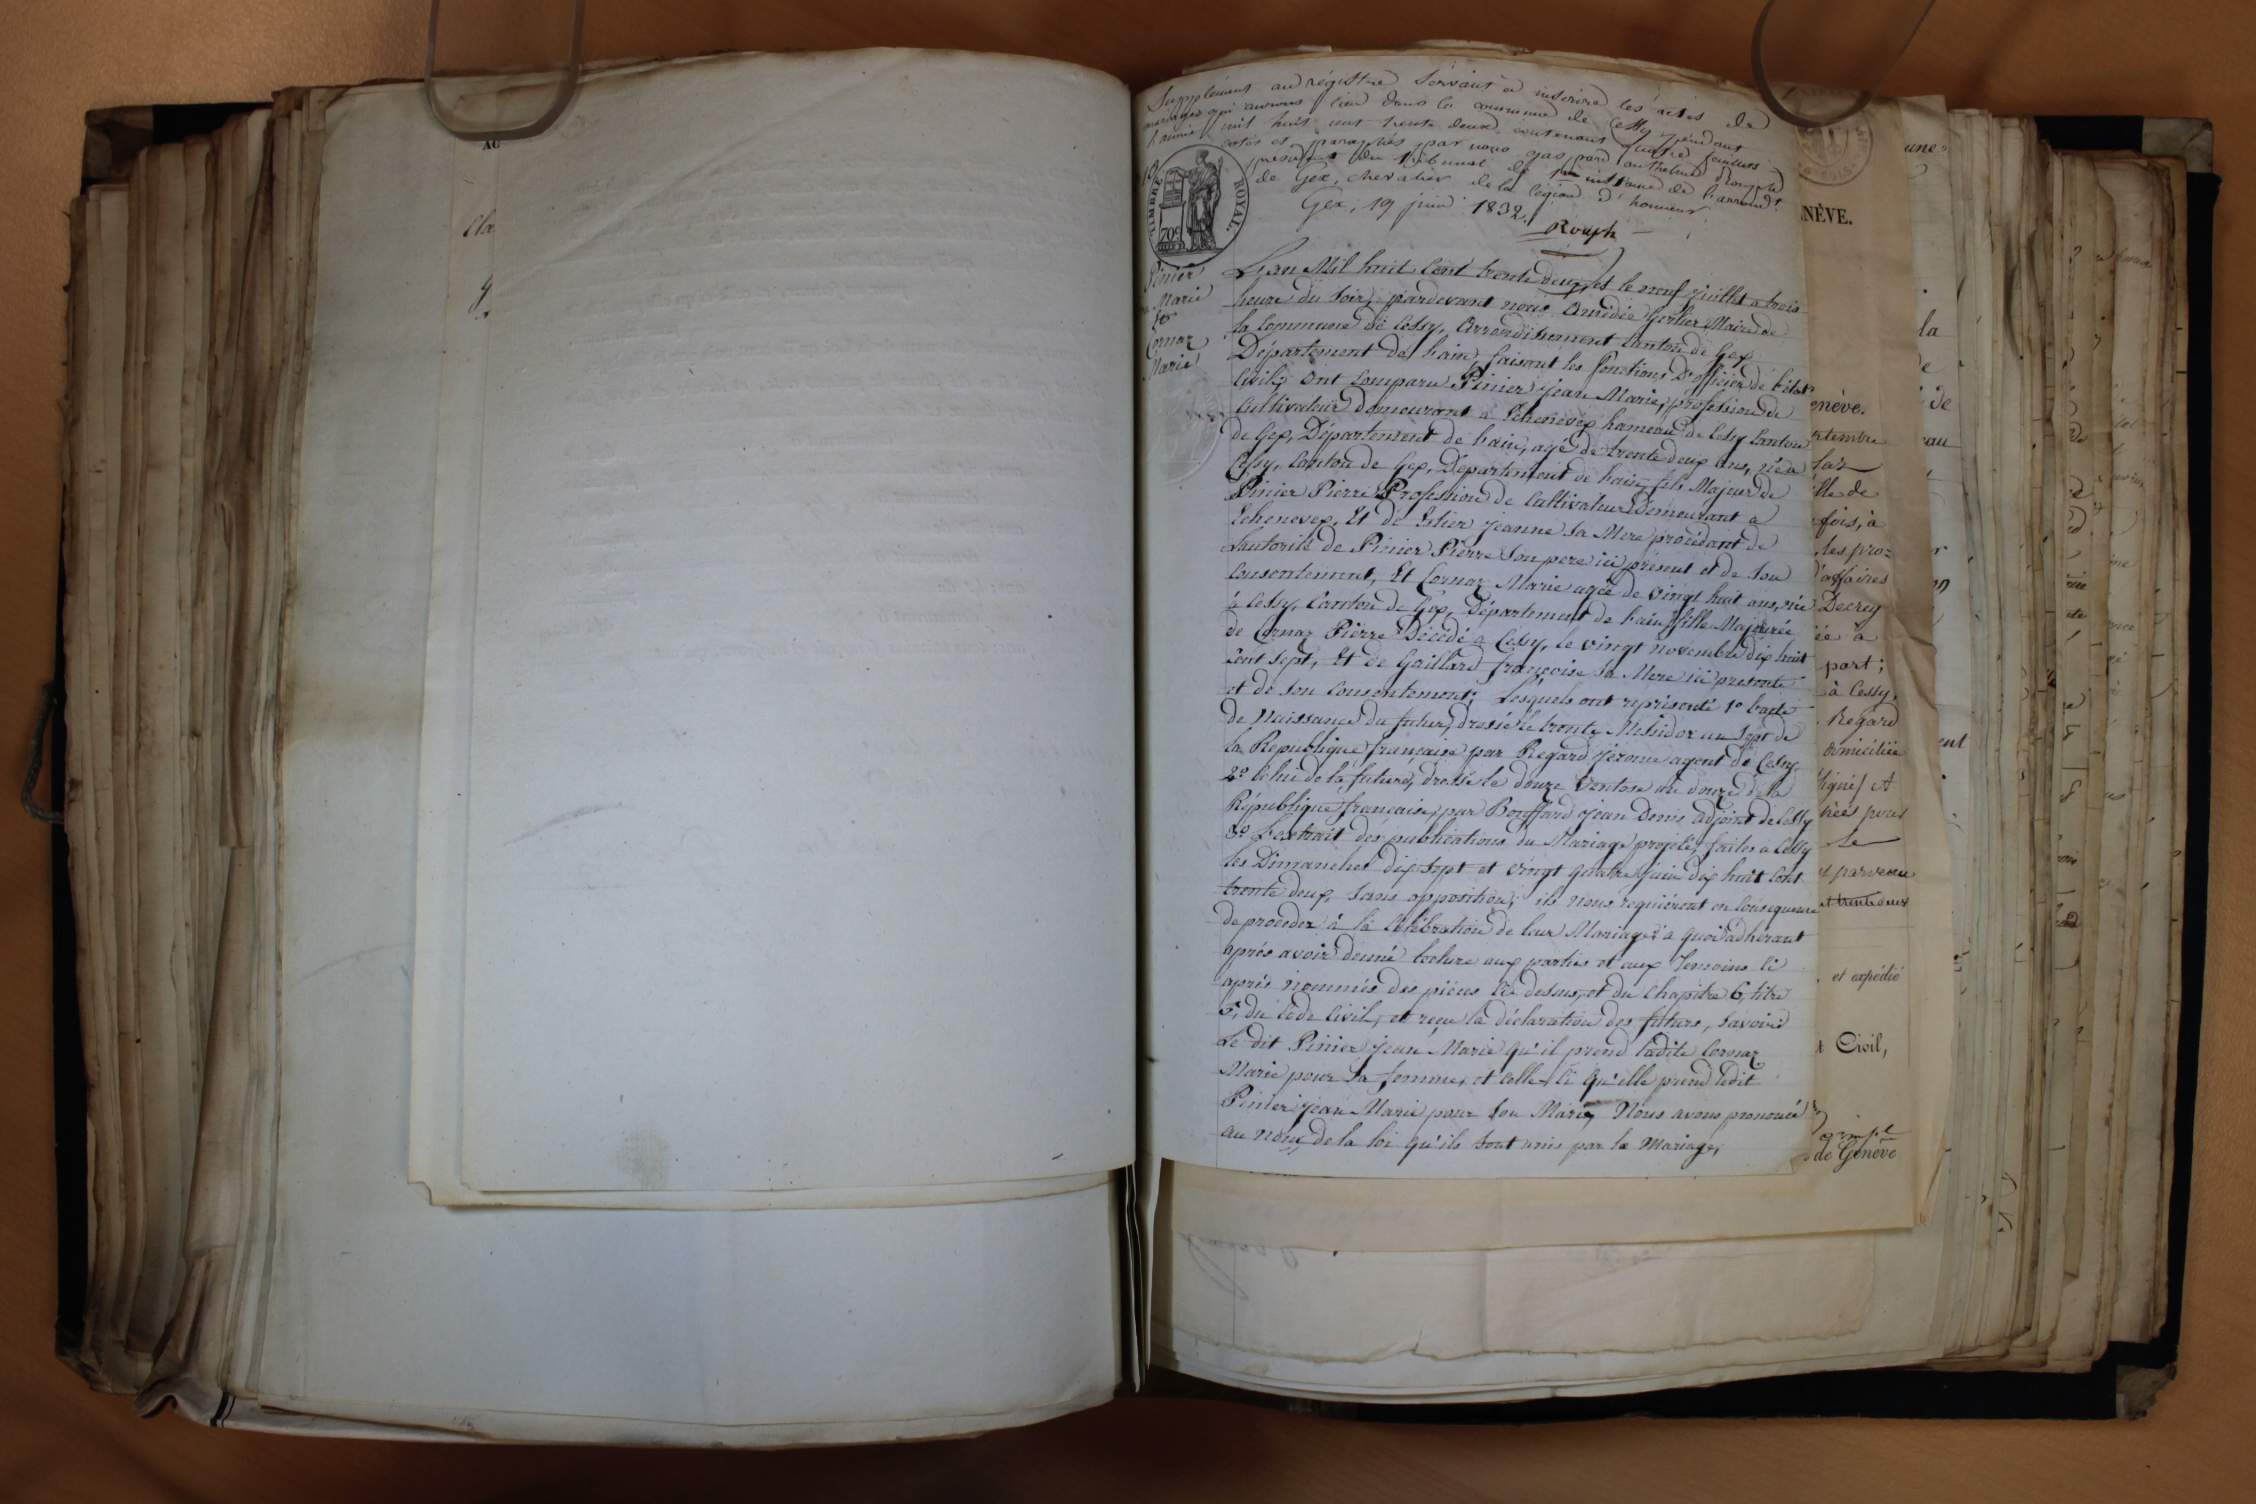 Supplément au régistre servant à inscrire les actes de
mariages qui auront lieu dans la commune de Cessy pendant
l'année mil huit cent trente deux, contenant quatre feuillets
cotés et paraphés par nous gaspard anthelme
président du tribunal de 1re instance de l'arrond.t
de Gex, chevalier de la légion d'honneur
Gex, 19 juin 1832.
Rouph
TIMBRE ROYAL
70c
Pinier
Marie
Cornaz
Marie
L'an Mil huit Cent trente deux, et le neuf juillet a trois
heure du soir, pardevant nous Amédée Gerlier Maire de
la Commune de Cessy, Arrondissement Canton de Gex
Département de l'ain, faisant les fonctions d'officier de l'état
Civil, Ont Comparu Pinier Jean Marie, profession de
Cultivateur Demeurant a Echenevex hameau de Cessy Canton
de Gex, Département de l'ain, agé de trente deux ans, né a
Cessy, Canton de Gex, Département de l'ain, fils Majeur de
Pinier Pierre Profession de Cultivateur Demeurant a
Echenevex, Et de Jeanne sa Mere procédant de
L'autorité de Pinier Pierre son pere ici présent et de son
Consentement, Et Cornaz Marie agée de vingt huit ans, née
à Cessy, Canton de Gex, Département de l'ain, fille Majeure
de Cornaz Pierre Décédé a Cessy, le vingt novembre dix huit
Cent sept, Et de Gaillard françoise sa Mere ici presente
et de son Consentement; Lesquels ont représenté 1º l'acte
de Naissance du futur, dressé le trente Messidor an Sept de
la Republique française par Regard Jérome agent de Cessy
2º Celui de la future, dressé le douze Ventose an douze de la
République française, par Bouffard Jean Denis adjoint de Cessy
3º L'extrait des publications du Mariage projeté, faites a Cessy
les Dimanches dix sept et vingt quatre Juin dix huit Cent
trente deux, sans opposition; ils nous requiérent en Conséquence
de procéder à la Célébration de leur Mariage; à quoi adhérant
après avoir donné lecture aux parties et aux temoins ci
après nommés des pièces ci dessus, et du Chapitre 6, titre
5, du Code Civil, et reçu la déclaration des futurs, savoir
Le dit Pinier Jean Marie qu'il prend ladite Cornaz
Marie pour sa femme, et celle ci qu'elle prend ledit
Pinier Jean Marie pour son Mari, Nous avons prononcé
au nom de la loi qu'ils sont unis par le Mariage,
NÈVE.
enève.
lle de
fois, à
les pro=
d'affaires
Decrey
ée à
part;
à Cessy,
Regard
domiciliée
signé) et
le
parvenu
et trente deux
et expédié
t Civil,
de Genève
une
la
de